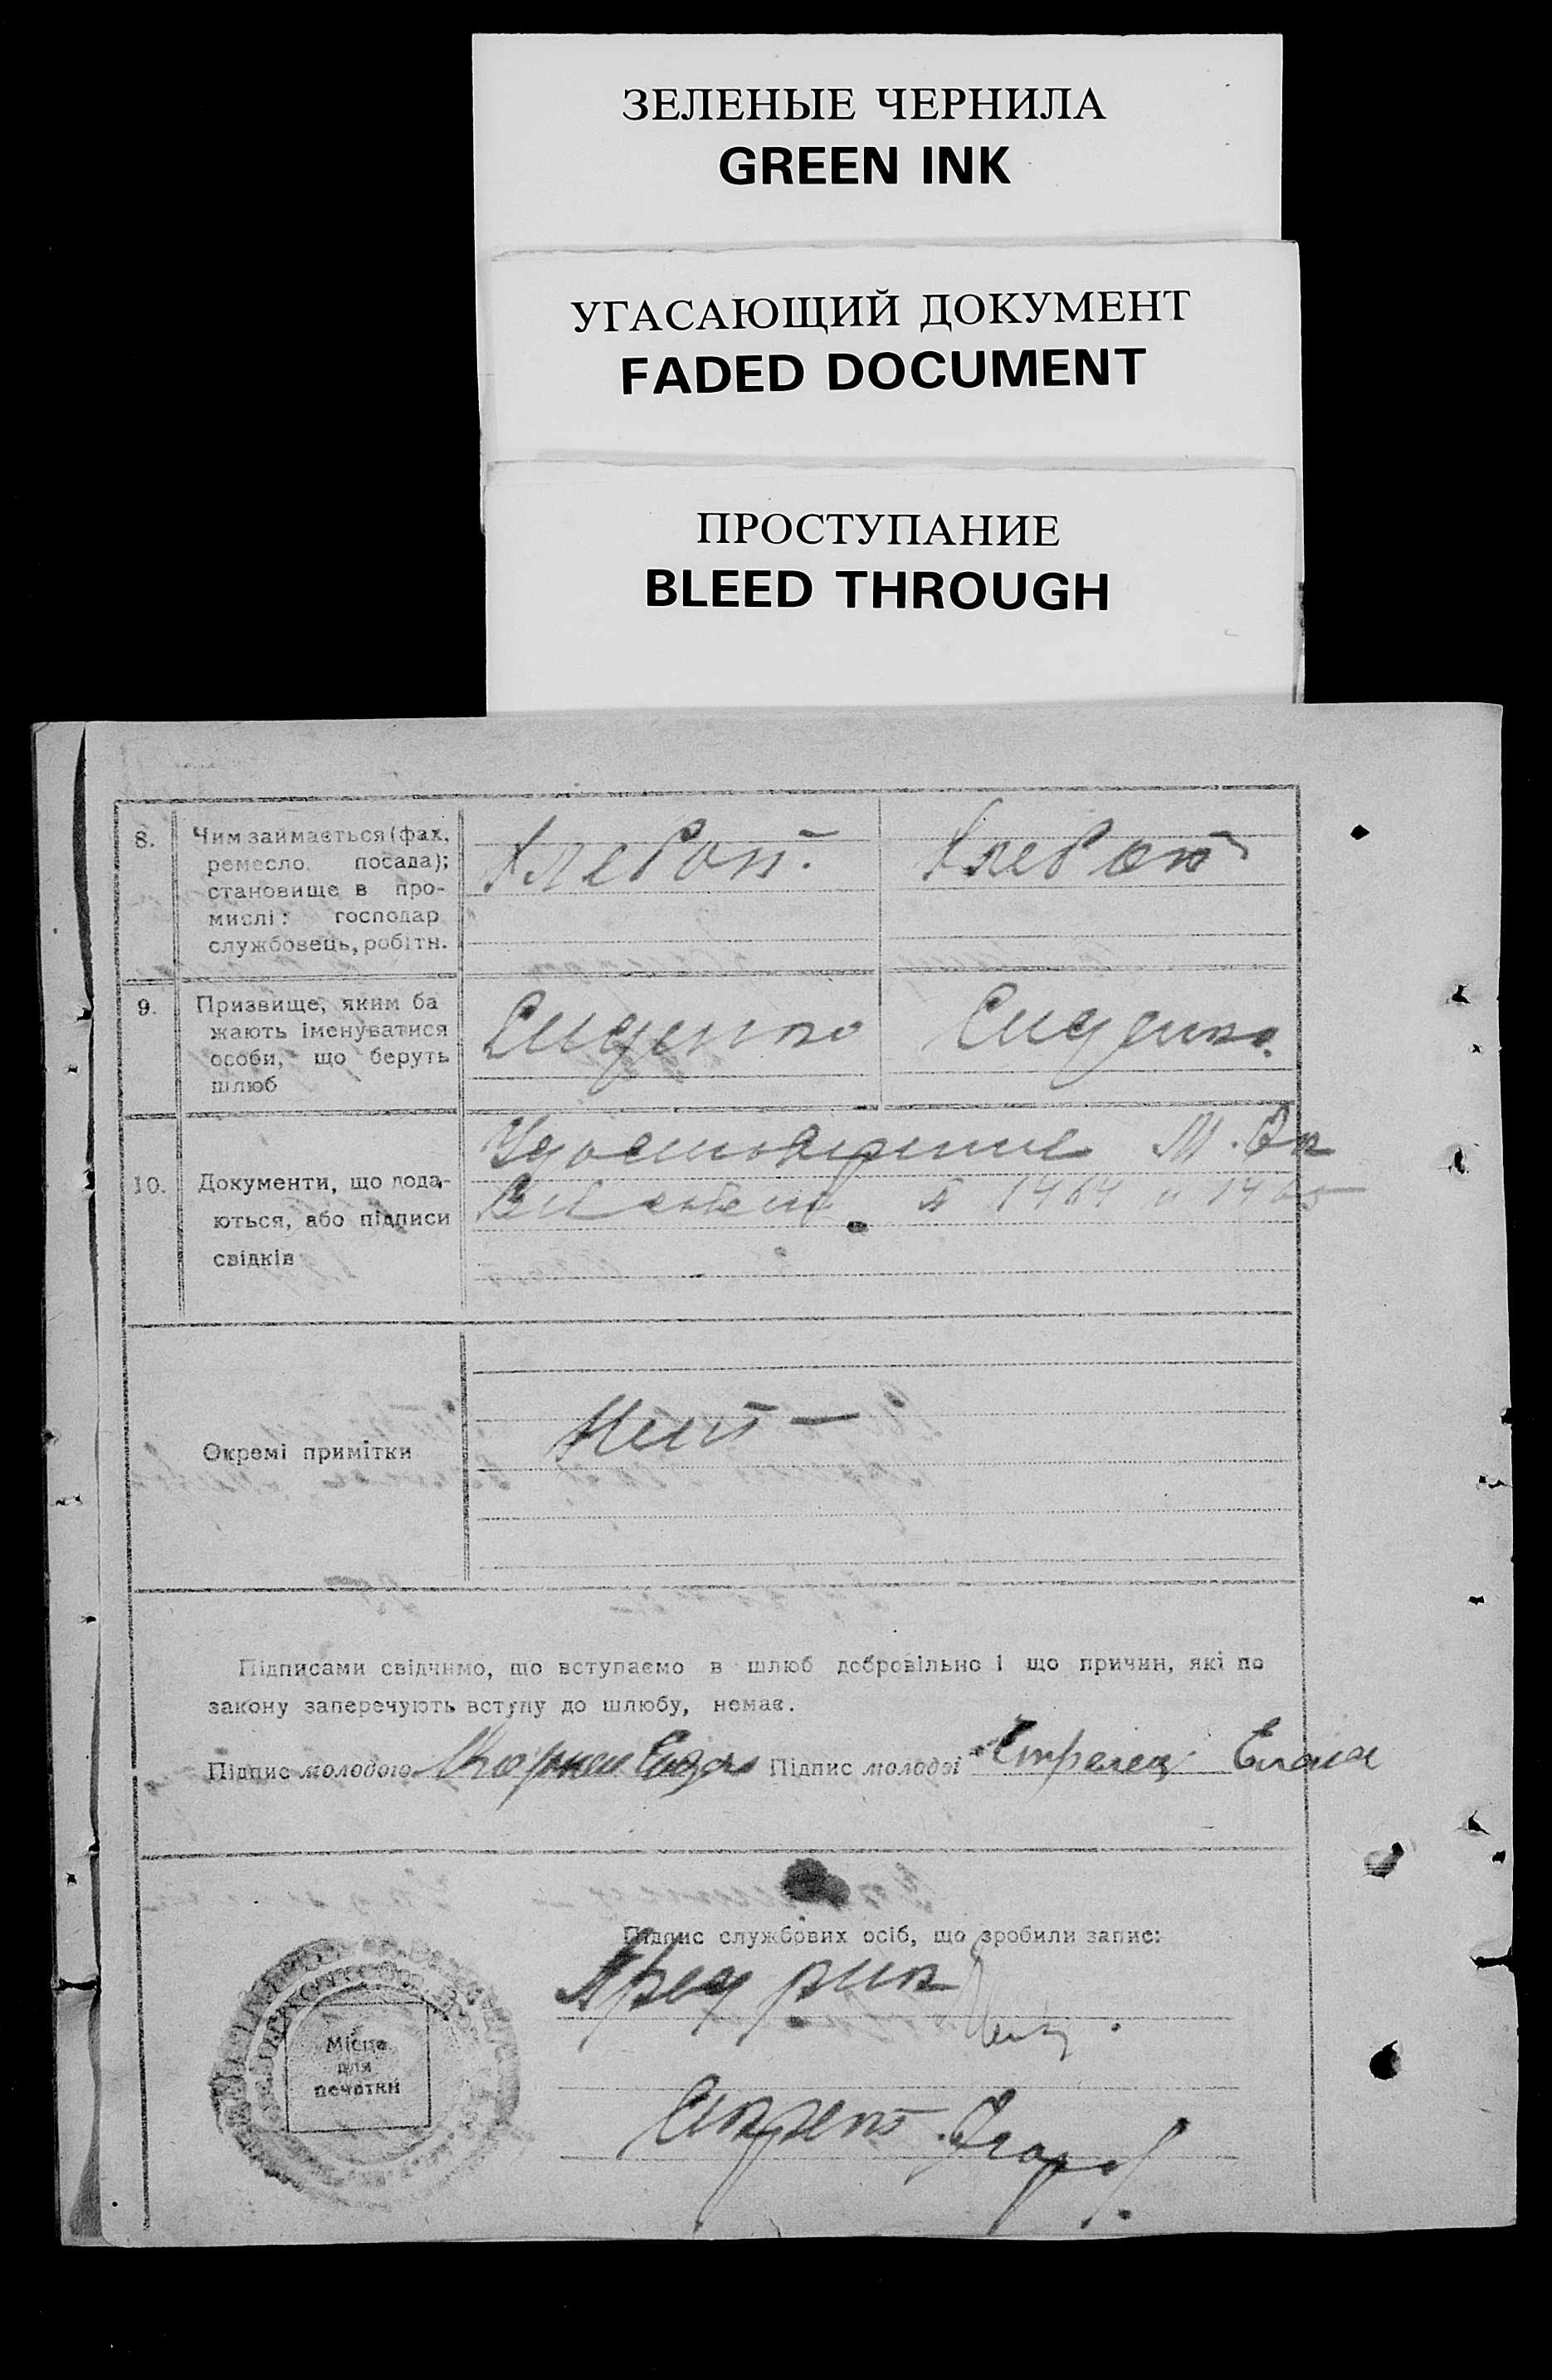 ЗЕЛЕНЫЕ ЧЕРНИЛА
GREEN INK
УГАСАЮЩИЙ ДОКУМЕНТ
FADED DOCUMENT
ПРОСТУПАНИЕ
BLEED THROUGH
8.
Чим займається (фах,
ремесло, посада);
становище в про-
мислі: господар
службовець, робітн.
Хлебоп.
Хлебоп
9.
Призвище, яким ба
жають іменуватися
особи, що беруть
шлюб
10.
Документи, що пода-
ються, або підписи
свідків
Удостоверение
1464 и 1465
Окремі примітки
Нет –
Підписами свідчимо, що вступаємо в шлюб добровільно і що причин, які по
закону заперечують вступу до шлюбу, немає.
Підпис молодого
Підпис молодої Стрелец Елена
Підпис службових осіб, що зробили запис:
Місце
для
печатки
Пред рик
Секрет